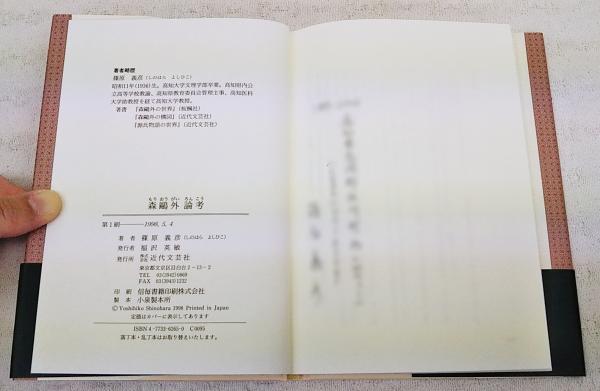 著者略歴
篠原 義彦(しのはら よしひこ)
昭和11年(1936)生。高知大学文理学部卒業。高知県内公
立高等学校教諭、高知県教育委員会管理主事、高知医科
大学助教授を経て高知大学教授。
著書 『森鷗外の世界』(桜楓社)
『森鷗外の構図』(近代文芸社)
『源氏物語の世界』(近代文芸社)
もり おう がい ろん こう
森鷗外論考
第1刷――1998. 5. 4
著者 篠原義彦(しのはら よしひこ)
発行者 福沢英敏
発行所 株式会社 近代文芸社
東京都文京区目白台2-13-2
TEL 03(3942)0869
FAX 03(3943)1232
印刷 信毎書籍印刷株式会社
製本 小泉製本所
©Yoshihiko Shinohara 1998 Printed in Japan
定価はカバーに表示してあります
ISBN4-7733-6265-0 C0095
落丁本・乱丁本はお取り替えいたします。